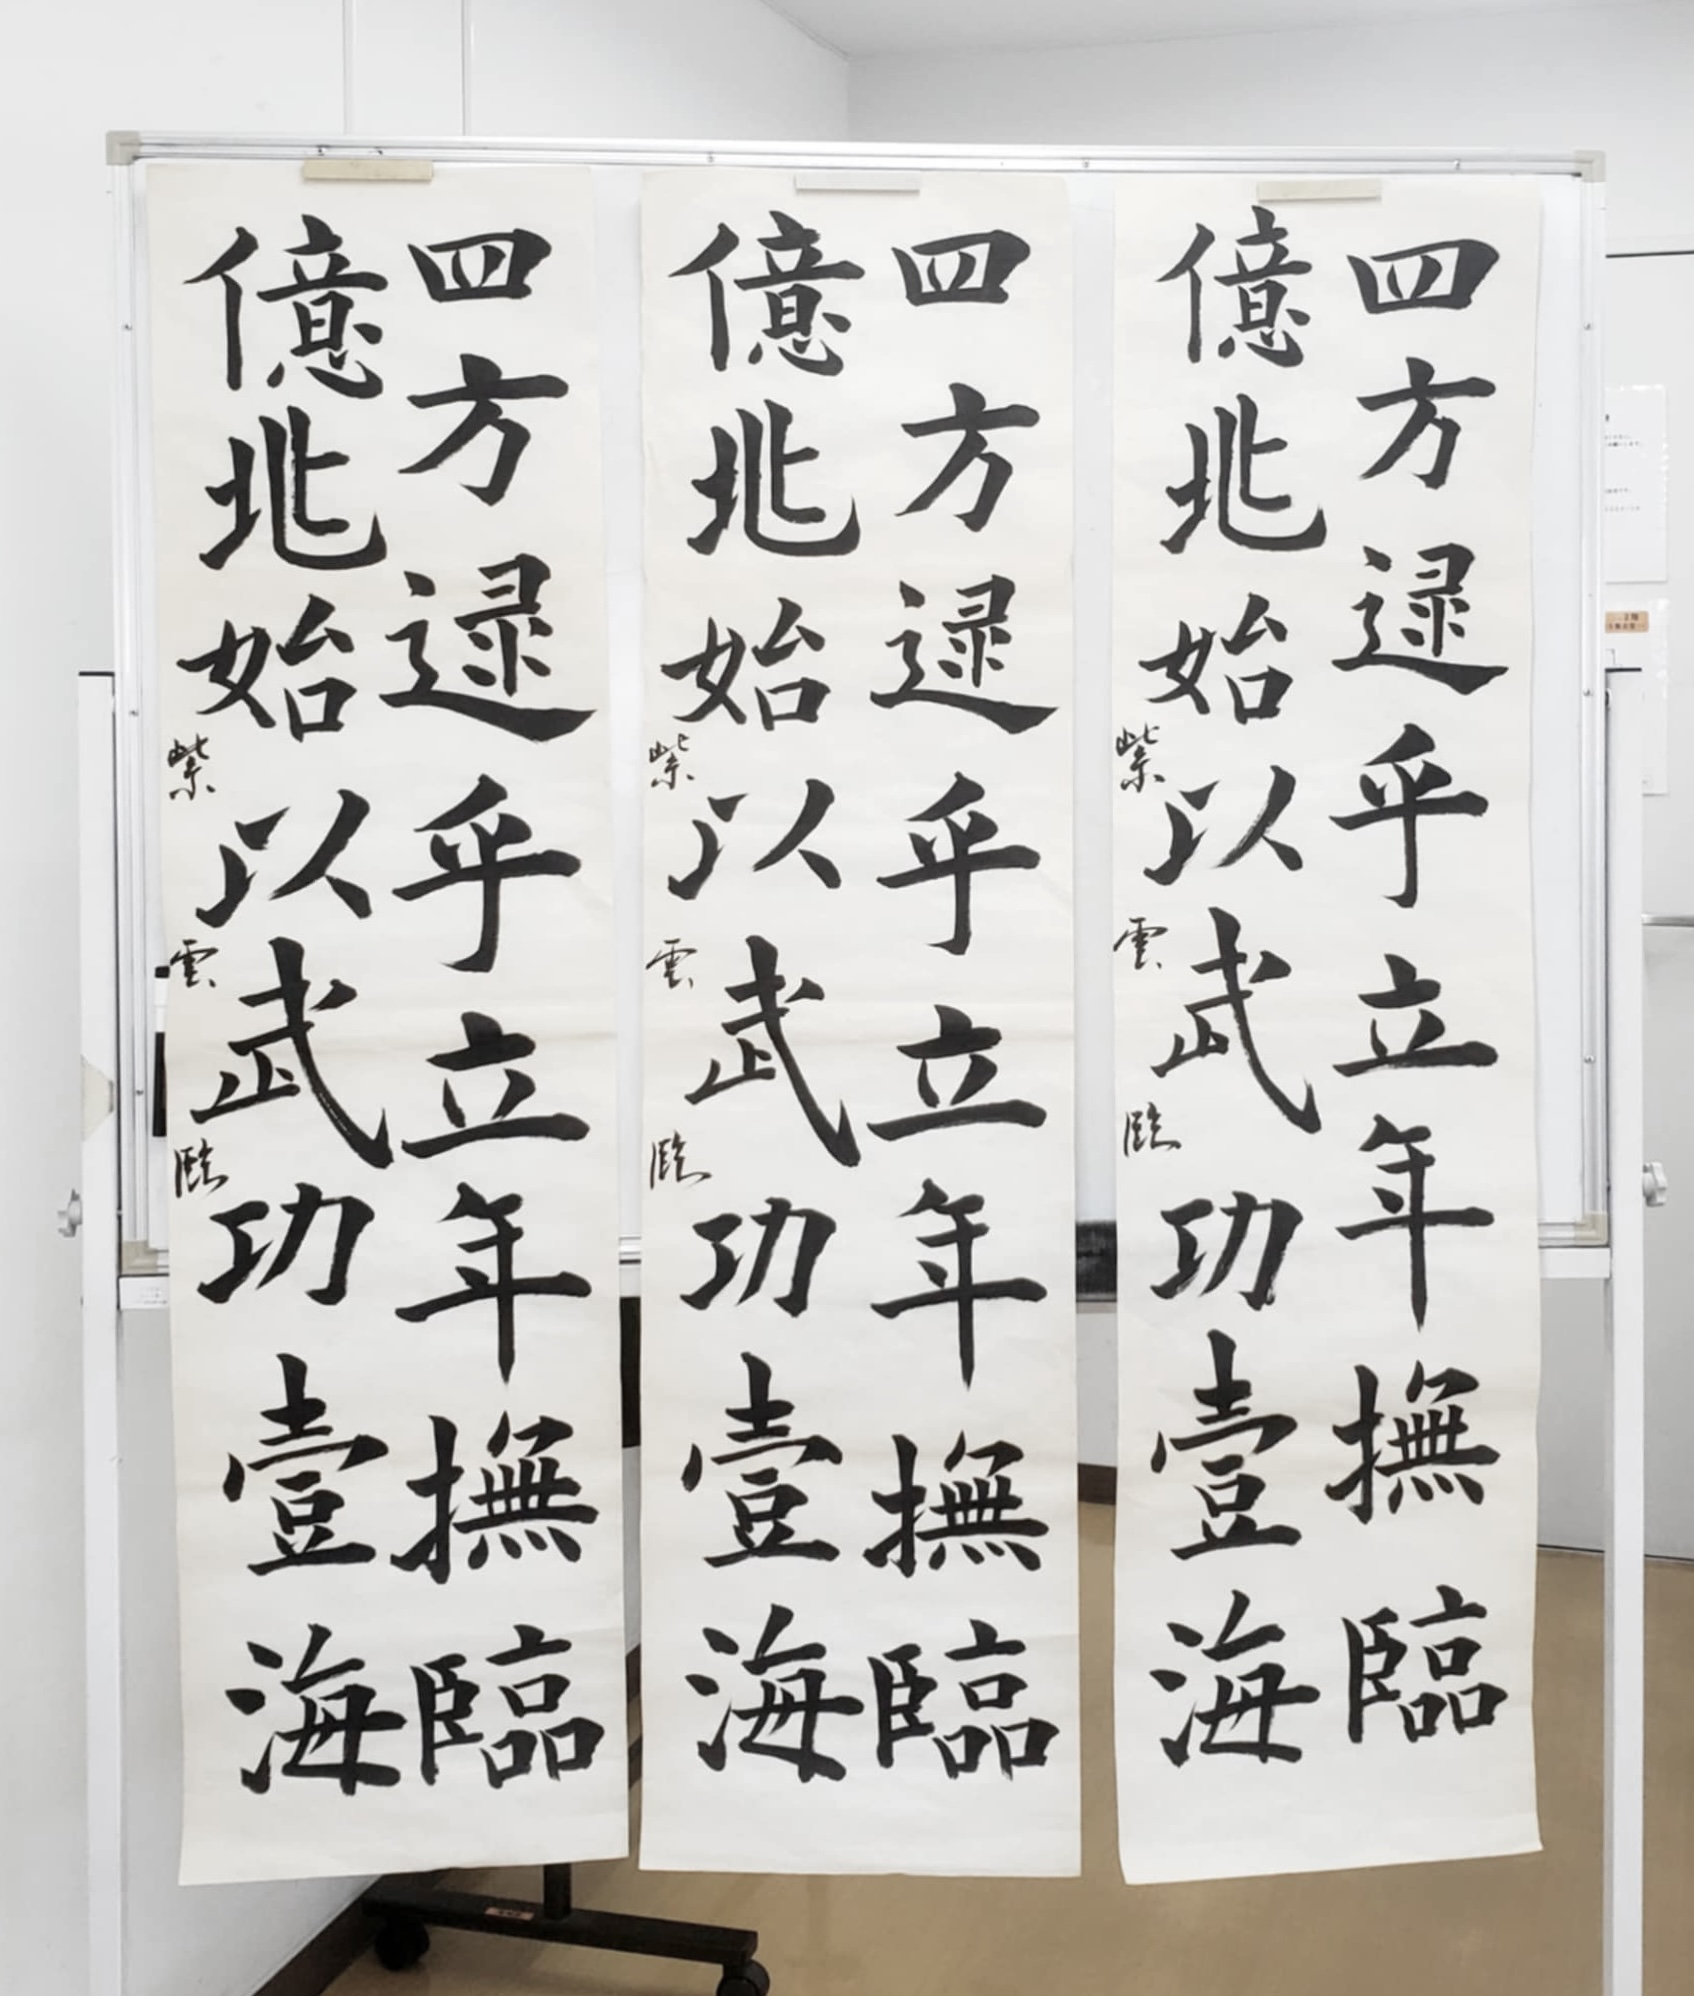 四方逯乎立年撫臨
億兆始以武功壹海
紫雲臨
四方逯乎立年撫臨
億兆始以武功壹海
紫雲臨
四方逯乎立年撫臨
億兆始以武功壹海
紫雲臨